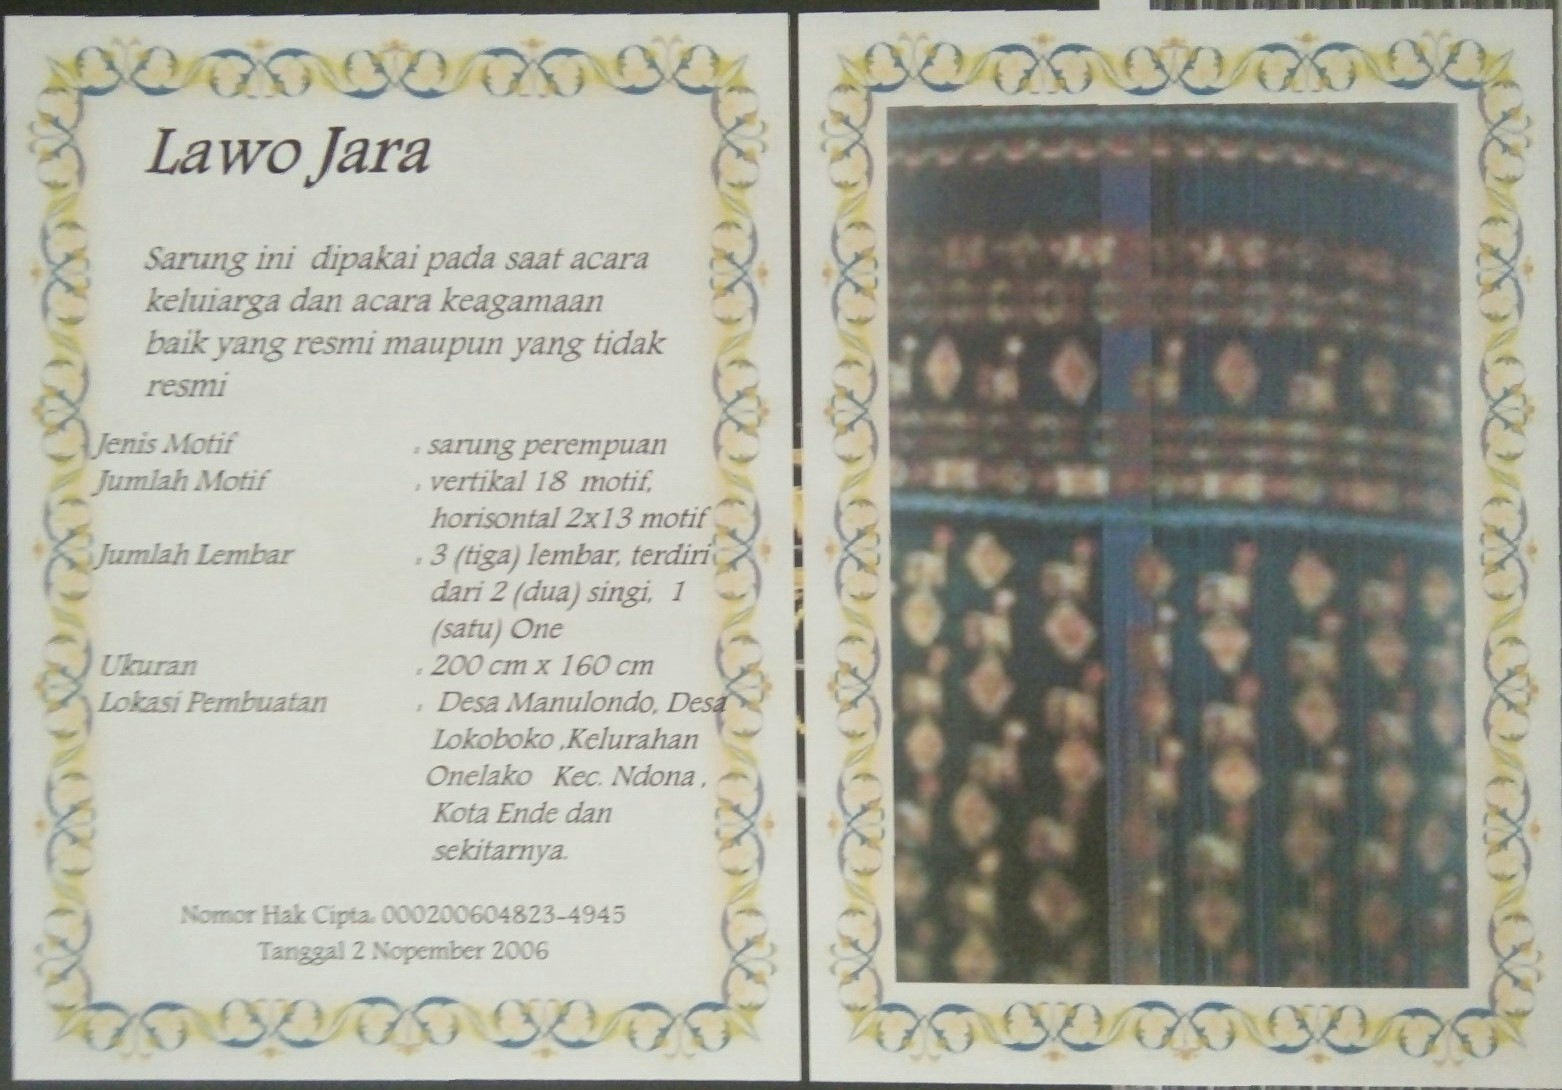 Lawo Jara
Sarung ini dipakai pada saat acara
keluiarga dan acara keagamaan
baik yang resmi maupun yang tidak
resmi
Jenis Motif : sarung perempuan
Jumlah Motif : vertikal 18 motif,
horisontal 2x13 motif
Jumlah Lembar : 3 (tiga) lembar, terdiri
dari 2 (dua) singi, 1
(satu) One
Ukuran : 200 cm x 160 cm
Lokasi Pembuatan : Desa Manulondo, Desa
Lokoboko ,Kelurahan
Onelako Kec. Ndona ,
Kota Ende dan
sekitarnya.
Nomor Hak Cipta: 000200604823-4945
Tanggal 2 Nopember 2006